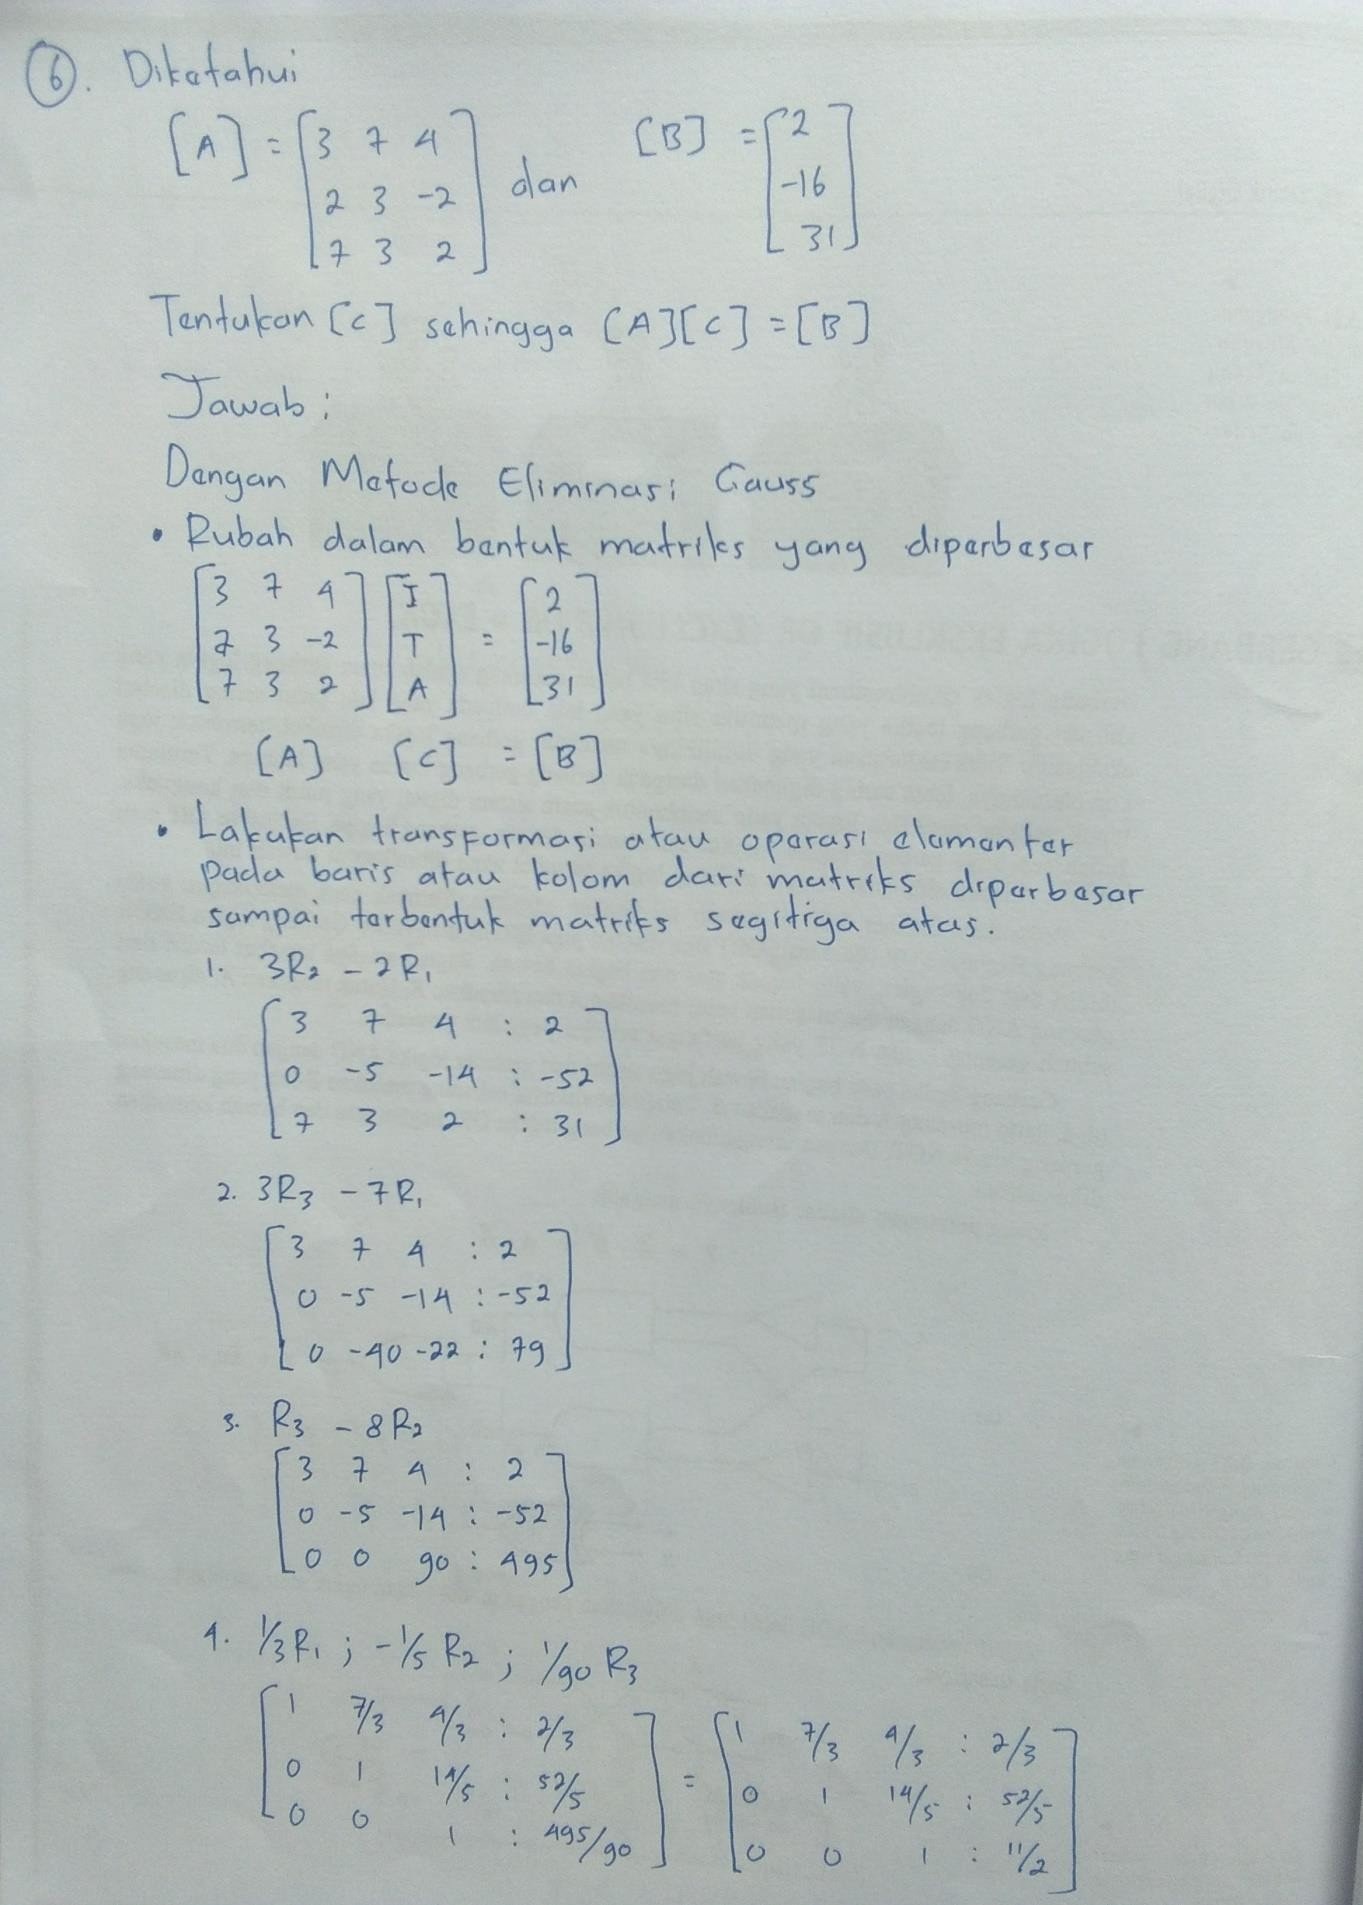 6. Diketahui
[A] = [3 7 4 dan [B] = [2
2 3 -2 -16
7 3 2] 31]
Tentukan [C] sehingga [A][C] = [B]
Jawab :
Dengan Metode Eliminasi Gauss
• Rubah dalam bentuk matriks yang diperbesar
[3 7 4] [I] = [2
7 3 -2 T -16
7 3 2] A] 31]
[A] [C] = [B]
• Lakukan transformasi atau operasi elementer
pada baris atau kolom dari matriks diperbesar
sampai terbentuk matriks segitiga atas.
1. 3R2 - 2R1
[3 7 4 : 2
0 -5 -14 : -52
7 3 2 : 31]
2. 3R3 - 7R1
[3 7 4 : 2
0 -5 -14 : -52
0 -40 -22 : 79]
3. R3 - 8R2
[3 7 4 : 2
0 -5 -14 : -52
0 0 90 : 495]
4. 1/3 R1 ; -1/5 R2 ; 1/90 R3
[1 7/3 4/3 : 2/3 = [1 7/3 4/3 : 2/3
0 1 14/5 : 52/5 0 1 14/5 : 52/5
0 0 1 : 495/90] 0 0 1 : 11/2]